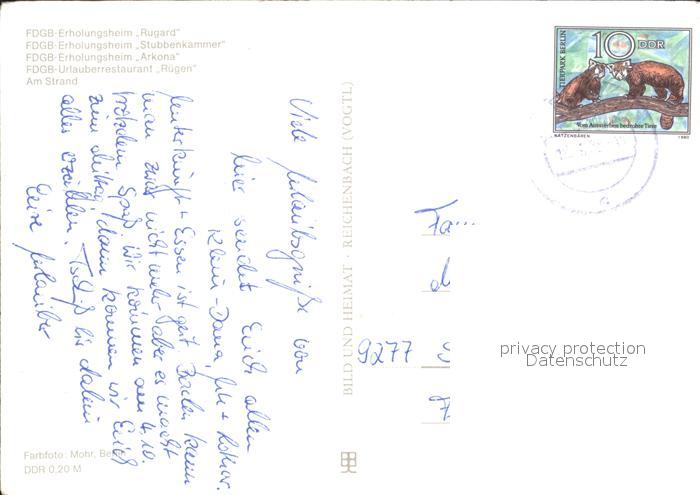 FDGB-Erholungsheim „Rugard"
FDGB-Erholungsheim „Stubbenkammer"
FDGB-Erholungsheim „Arkona"
FDGB-Urlauberrestaurant „Rügen"
Am Strand
TIERPARK BERLIN
10 DDR
Vom Aussterben bedrohte Tiere
KATZENBÄREN 1980
Viele Urlaubsgrüße von
hier sendet Euch allen
Klein-Dana, + Lothar.
Unterkunft + Essen ist gut. Baden kann
man zwar nicht mehr aber es macht
trotzdem Spaß. Wir kommen am 4.10.
zum dann können wir Euch
alles erzählen. Tschüß bis dahin
Eure Urlauber
BILD UND HEIMAT · REICHENBACH (VOGTL)
Fa...
d
9277
privacy protection
Datenschutz
Farbfoto: Mohr, Be
DDR 0,20 M